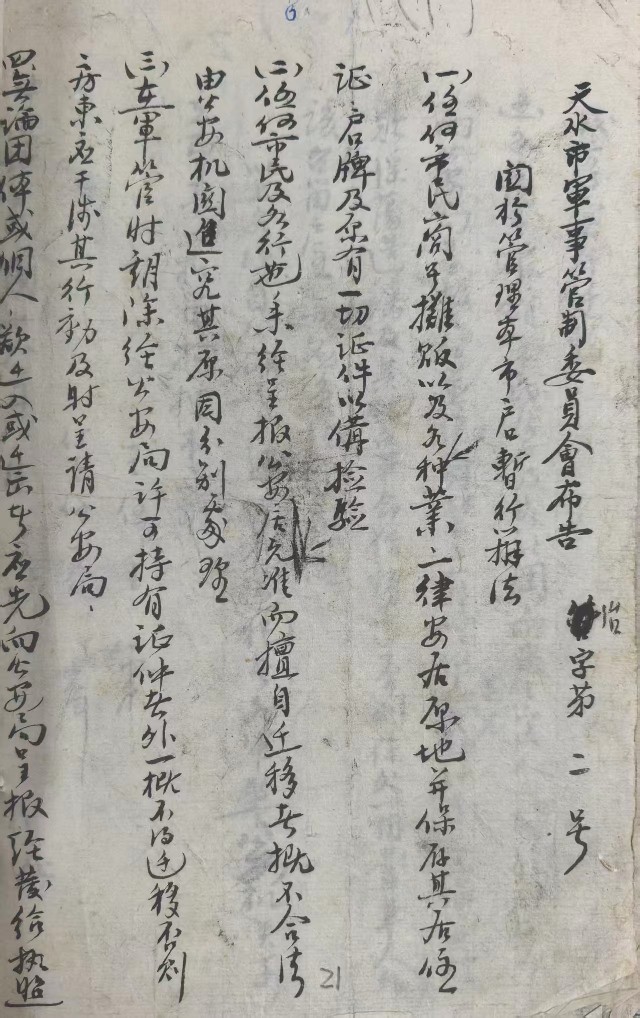 6
天水市軍事管制委員會布告 治字第二号
関於管理本市户暫行辦法
(一)任何市民商号攤販以及各种業一律安居原地并保存其居住
证户牌及原有一切证件以備检驗
(二)任何市民及各行业未经呈报公安局允准而擅自迁移者概不合法
由公安机関進究其原因分别处理
(三)在軍管时期除经公安局许可持有证件者外一概不得迁移否则
房東应干涉其行動及时呈请公安局、
四無論团体或個人欲迁入或迁出者应先向公安局呈报经發给执照
21